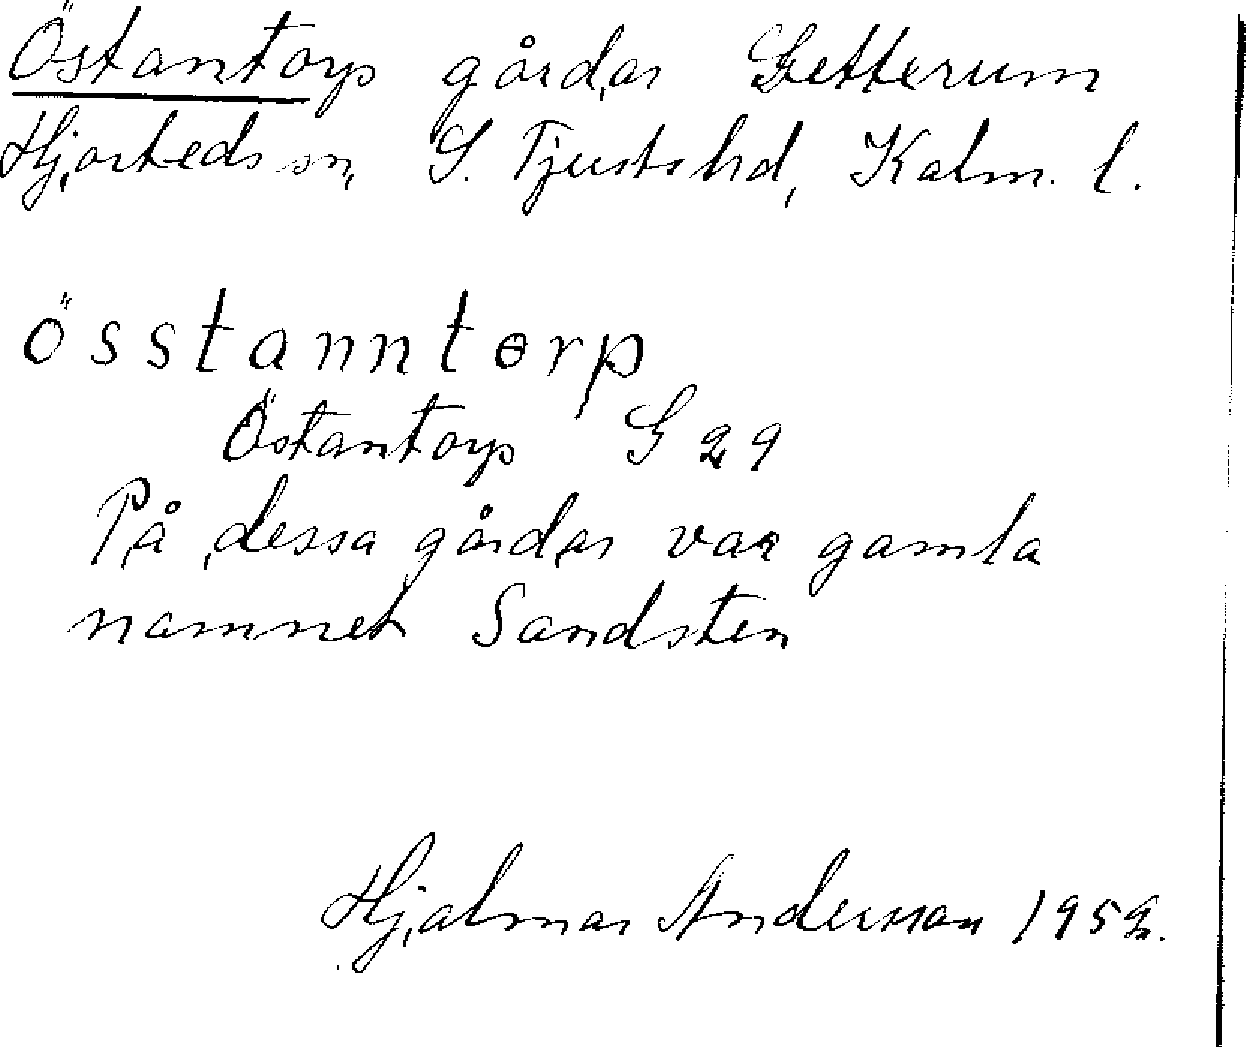 Östantorp gårdar Getterum
Hjorteds sn, S. Tjusts hd, Kalm. l.
össtanntɵrp
Östantorp G 29
På dessa gårdar var gamla
namnet Sandsten
Hjalmar Andersson 1952.